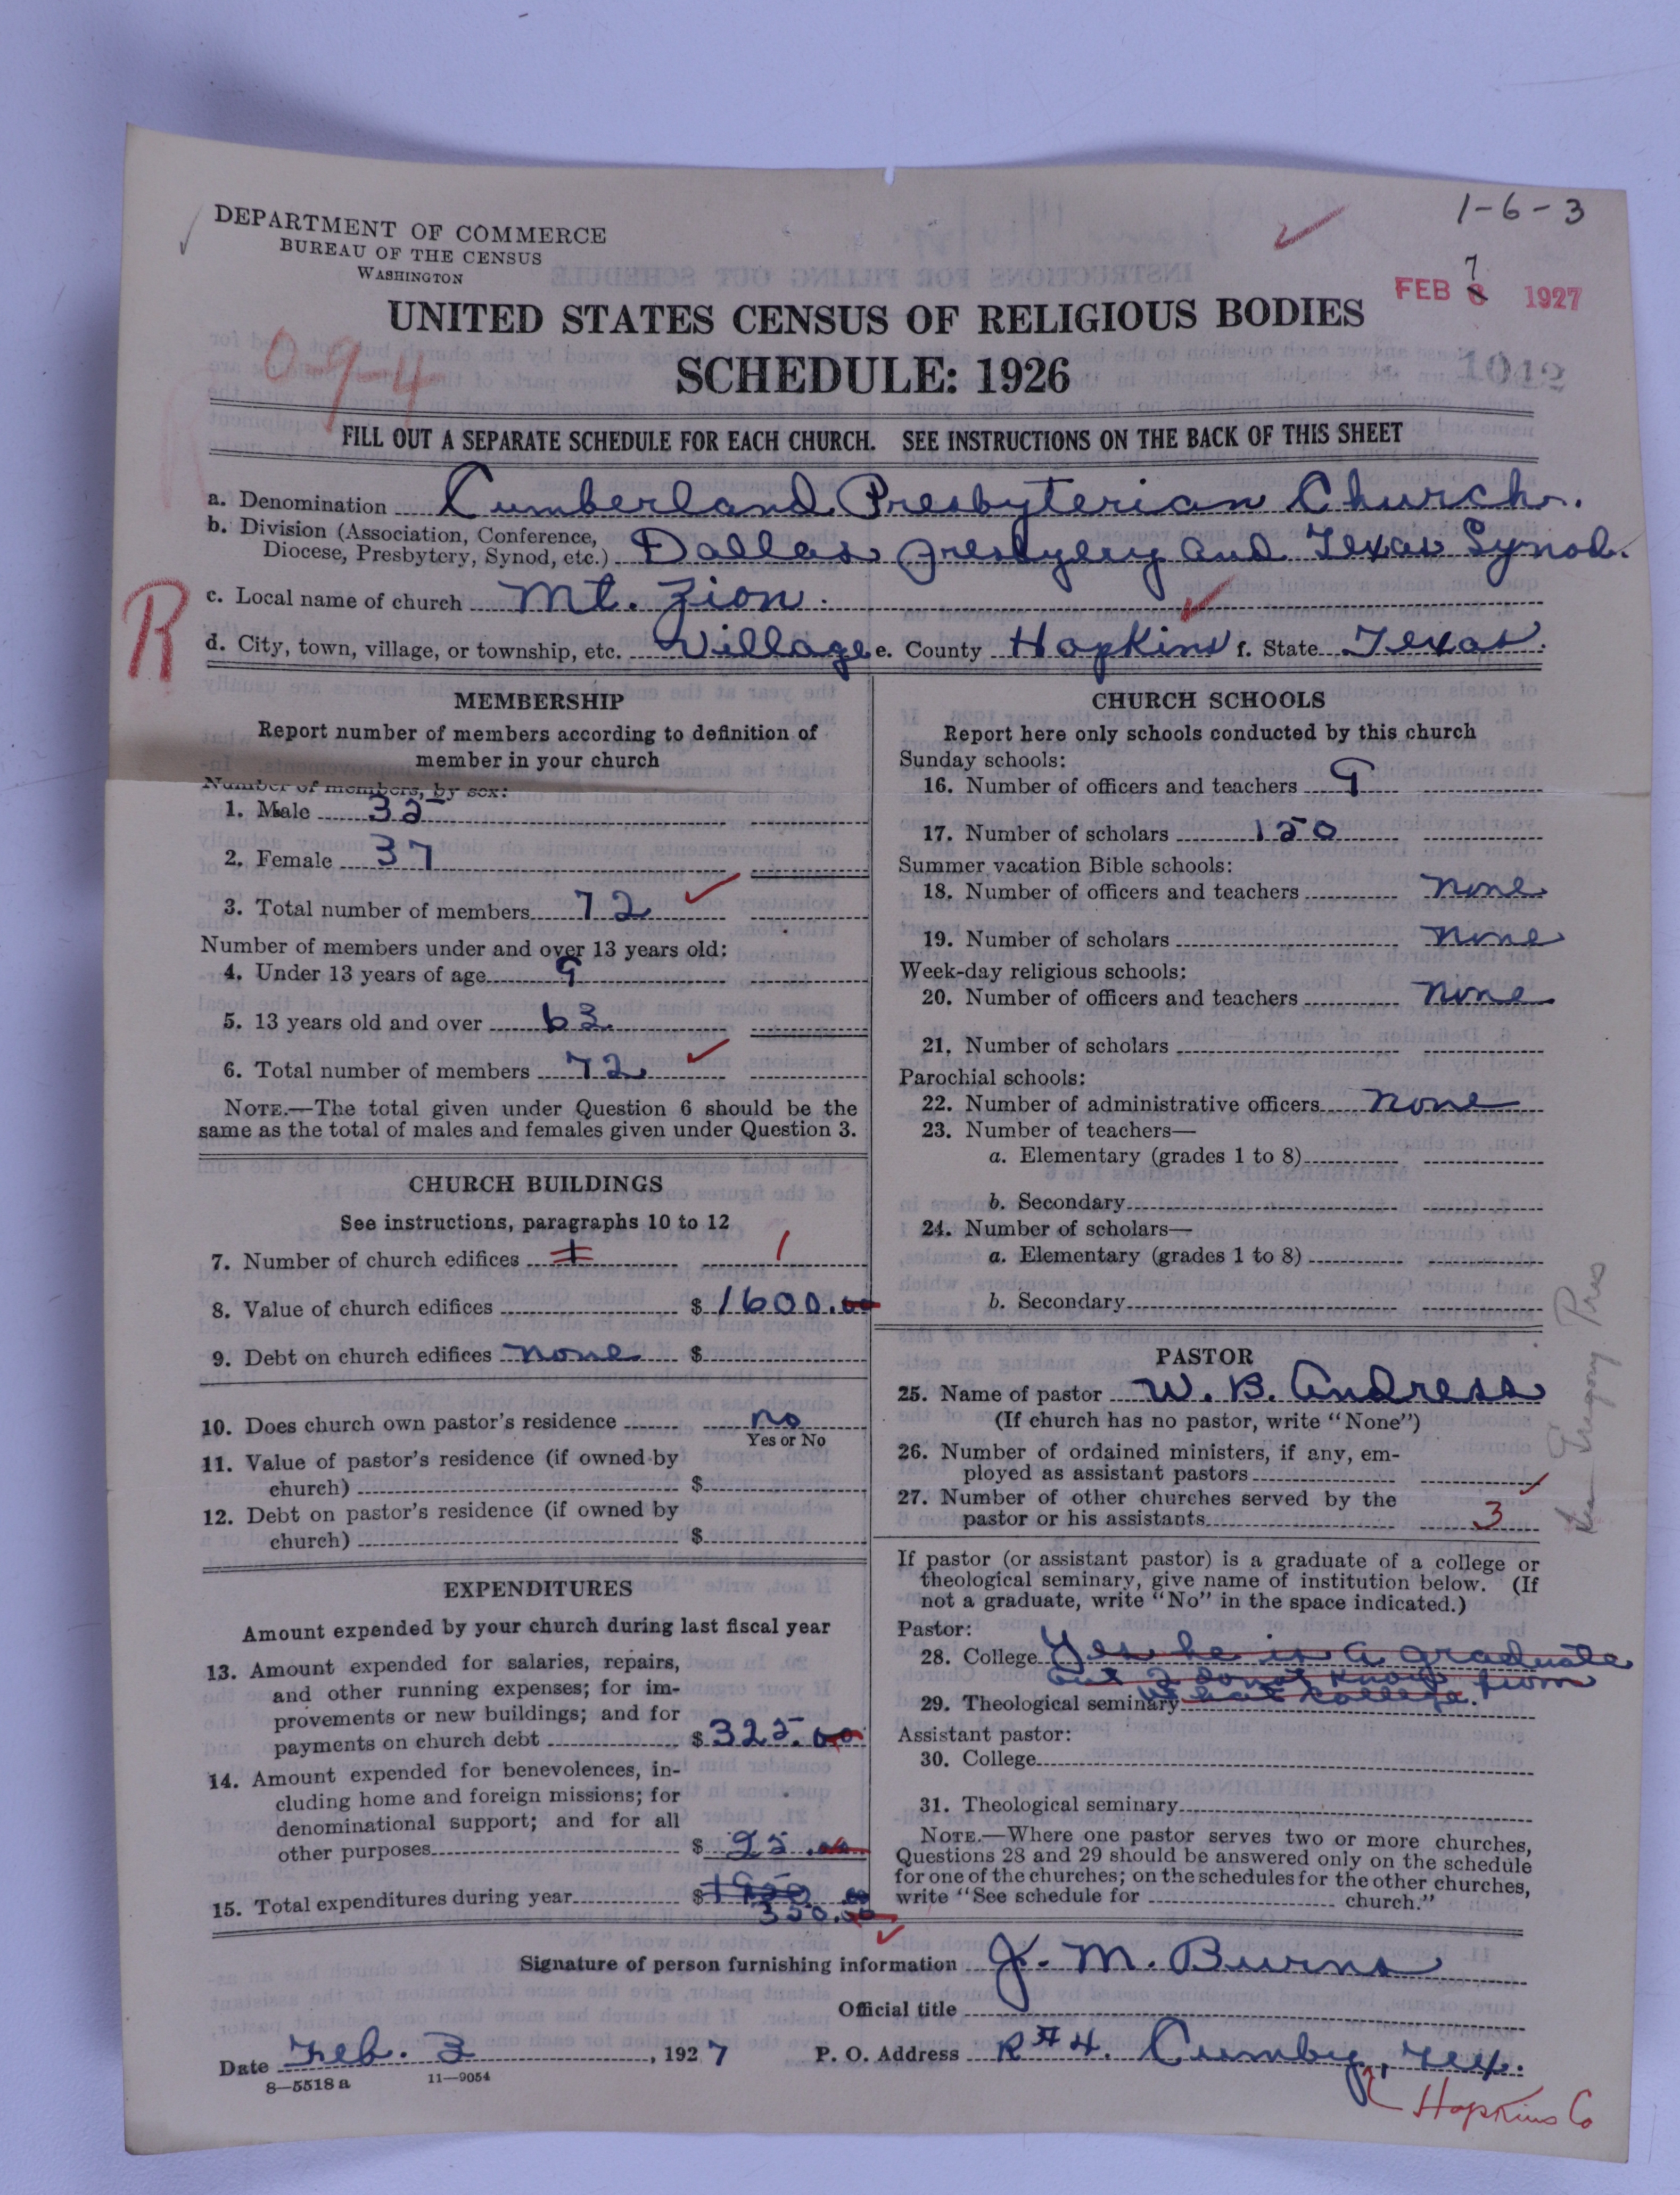 1-6-3
DEPARTMENT OF COMMERCE
BUREAU OF THE CENSUS
WASHINGTON
FEB 8 7 1927
UNITED STATES CENSUS OF RELIGIOUS BODIES
09-4
SCHEDULE: 1926
1042
FILL OUT A SEPARATE SCHEDULE FOR EACH CHURCH. SEE INSTRUCTIONS ON THE BACK OF THIS SHEET
a. Denomination Cumberland Presbyterian Church.
b. Division (Association, Conference,
Diocese, Presbytery, Synod, etc.) Dallas Presbyery and Texas Synod.
R
c. Local name of church Mt. Zion.
d. City, town, village, or township, etc. Village e. County Hopkins f. State Texas.
MEMBERSHIP
Report number of members according to definition of
member in your church
Number of members, by sex:
1. Male 35
2. Female 37
3. Total number of members 72
Number of members under and over 13 years old:
4. Under 13 years of age 9
5. 13 years old and over 63
6. Total number of members 72
NOTE.—The total given under Question 6 should be the
same as the total of males and females given under Question 3.
CHURCH BUILDINGS
See instructions, paragraphs 10 to 12
7. Number of church edifices 1 1
8. Value of church edifices $ 1600.00
9. Debt on church edifices none $
10. Does church own pastor's residence no
Yes or No
11. Value of pastor's residence (if owned by
church) $
12. Debt on pastor's residence (if owned by
church) $
EXPENDITURES
Amount expended by your church during last fiscal year
13. Amount expended for salaries, repairs,
and other running expenses; for im-
provements or new buildings; and for
payments on church debt $ 325.00
14. Amount expended for benevolences, in-
cluding home and foreign missions; for
denominational support; and for all
other purposes $ 25.00
15. Total expenditures during year $
350.00
CHURCH SCHOOLS
Report here only schools conducted by this church
Sunday schools:
16. Number of officers and teachers 9
17. Number of scholars 150
Summer vacation Bible schools:
18. Number of officers and teachers none
19. Number of scholars none
Week-day religious schools:
20. Number of officers and teachers none
21. Number of scholars
Parochial schools:
22. Number of administrative officers none
23. Number of teachers—
a. Elementary (grades 1 to 8)
b. Secondary
24. Number of scholars—
a. Elementary (grades 1 to 8)
b. Secondary
PASTOR
25. Name of pastor W. B. Andress
(If church has no pastor, write "None")
26. Number of ordained ministers, if any, em-
ployed as assistant pastors
27. Number of other churches served by the
pastor or his assistants 3
If pastor (or assistant pastor) is a graduate of a college or
theological seminary, give name of institution below. (If
not a graduate, write "No" in the space indicated.)
Pastor:
28. College Yes he is a graduate
but I do not know from
29. Theological seminary what college.
Assistant pastor:
30. College
31. Theological seminary
NOTE.—Where one pastor serves two or more churches,
Questions 28 and 29 should be answered only on the schedule
for one of the churches; on the schedules for the other churches,
write "See schedule for church."
Signature of person furnishing information J. M. Burns
Official title
Date Feb. 3, 1927 P. O. Address R#4. Cumby, Tex.
8—5518 a 11—9054
Hopkins Co